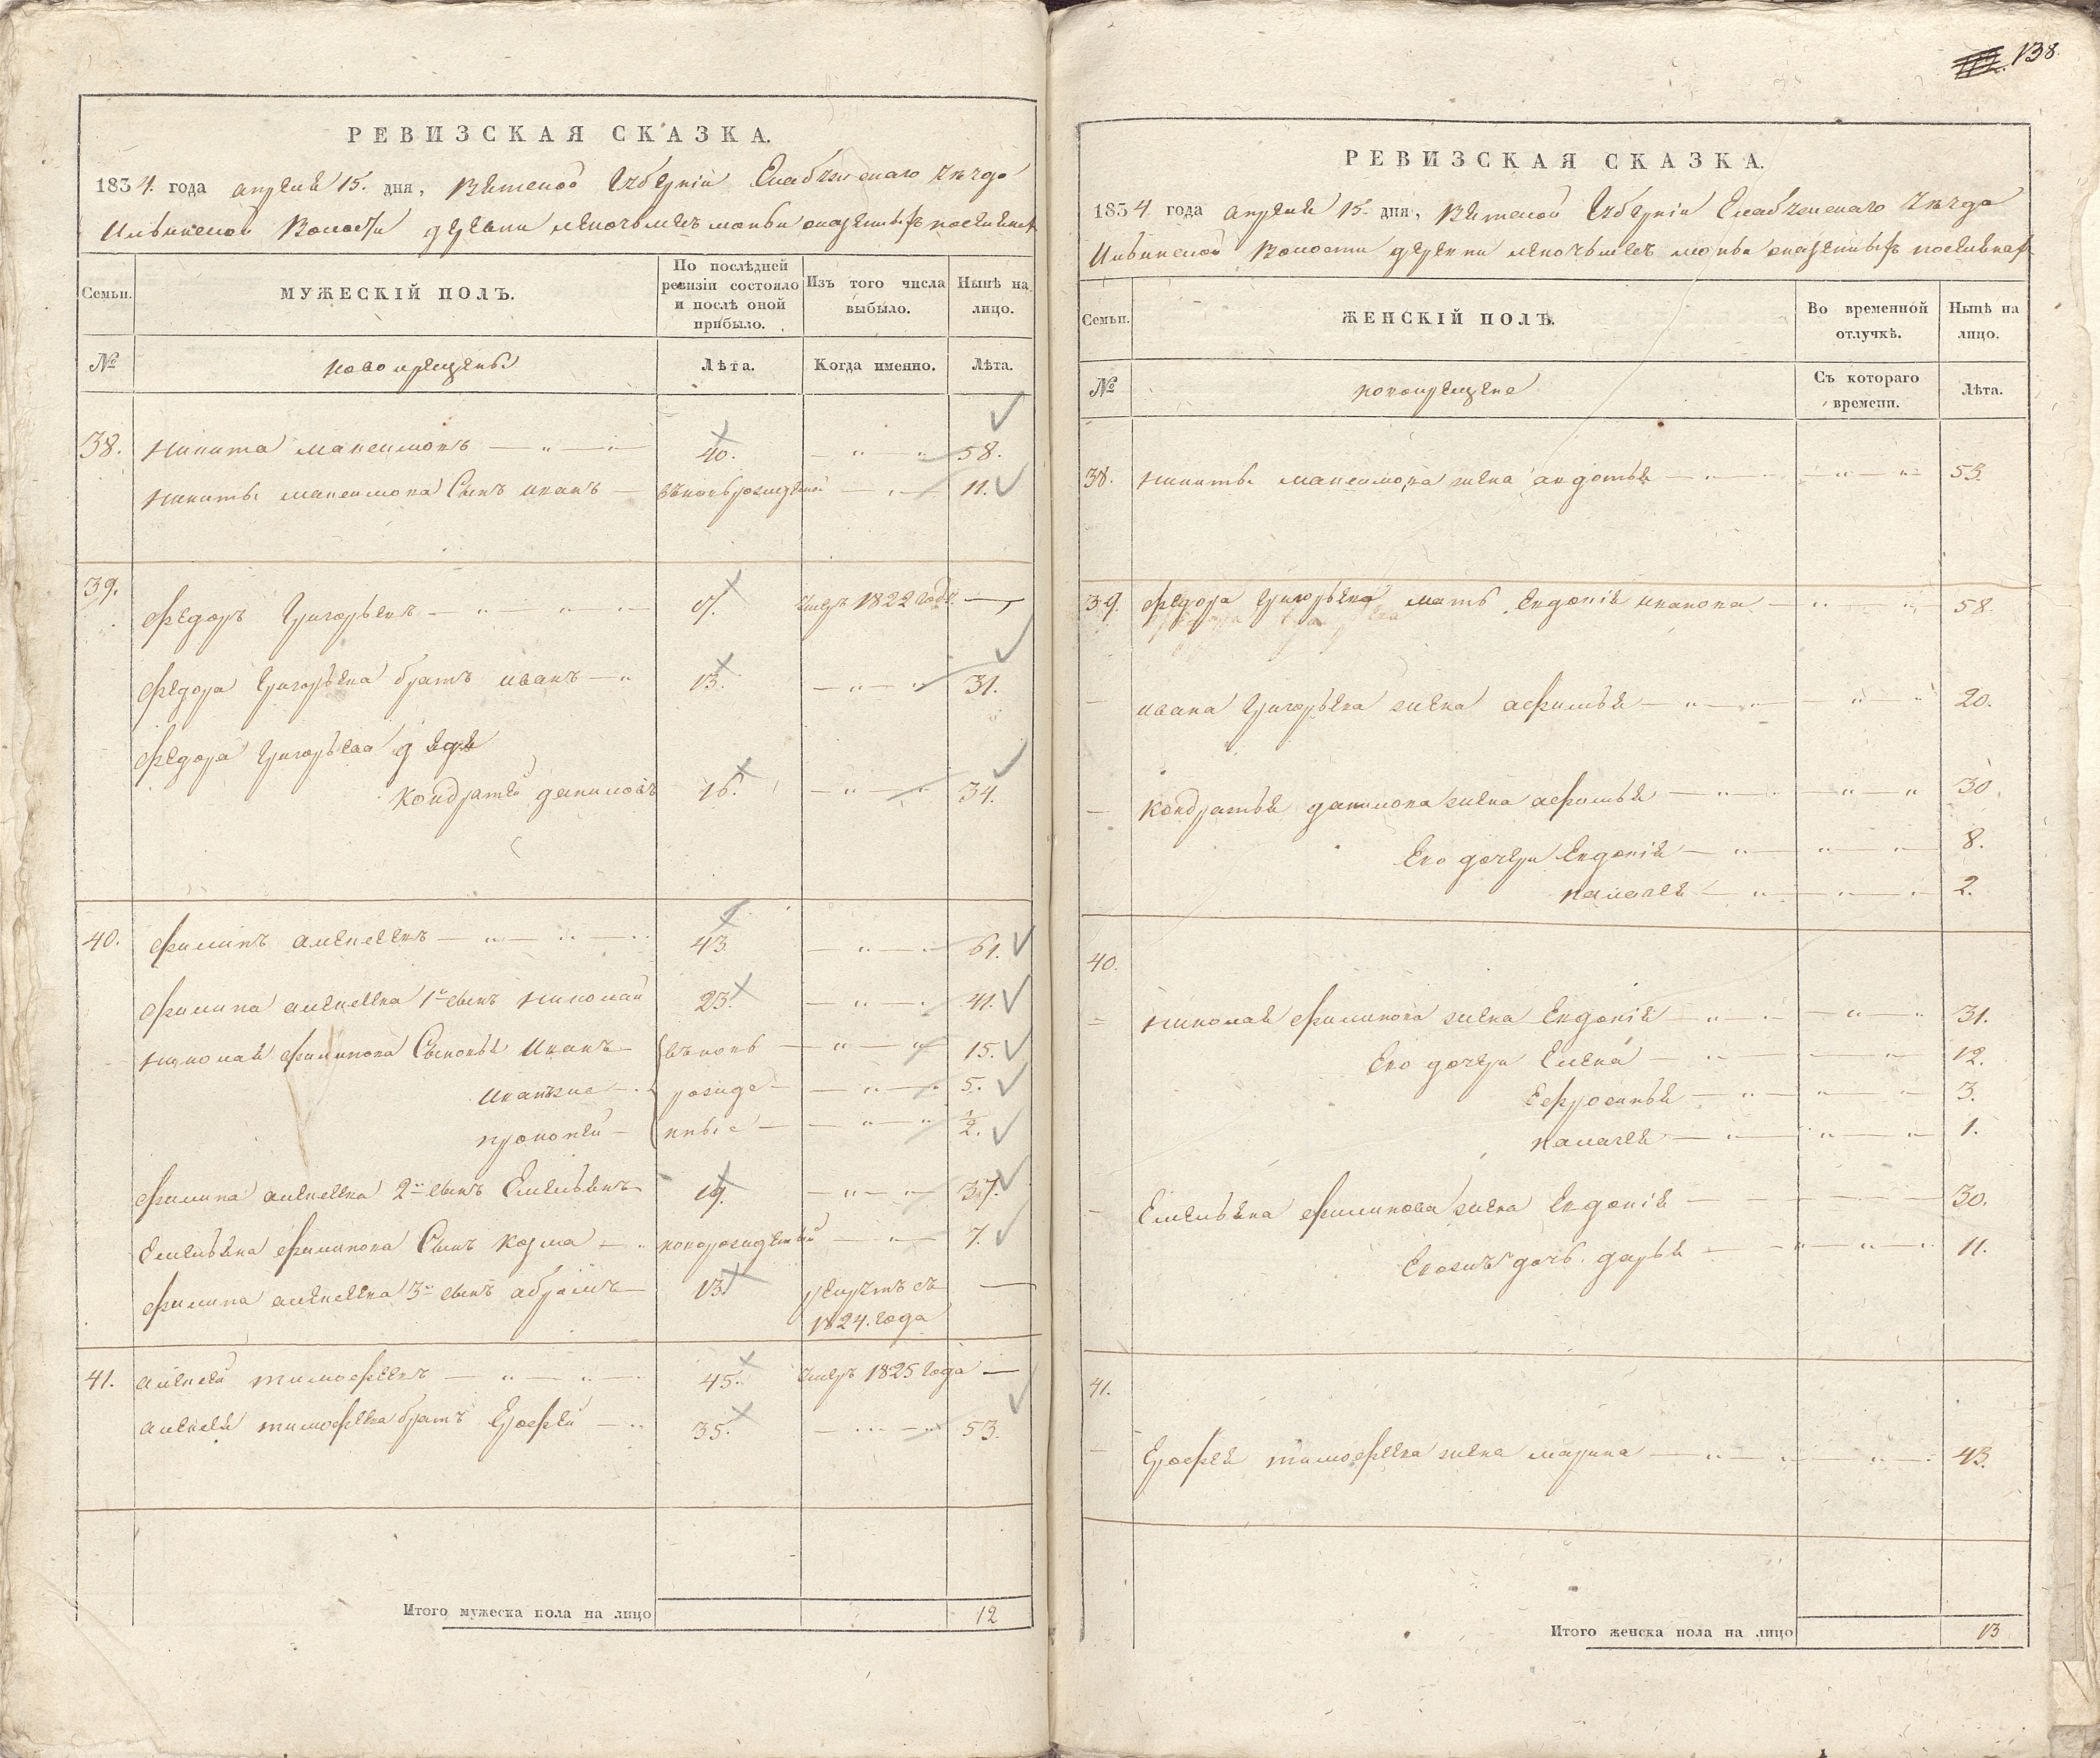 138.
РЕВИЗСКАЯ СКАЗКА.
1834. года апреля 15. дня, Вятской Губерніи Елабужскаго Уезда
Ильинской Волости деревни
Семьи.
МУЖЕСКІЙ ПОЛЪ.
По послѣдней ревизіи состояло и послѣ оной прибыло.
Изъ того числа выбыло.
Нынѣ на лицо.
№
новокрещены
Лѣта.
Когда именно.
Лѣта.
38. никита максимовъ — „ — „ — 40. — „ — „ 58.
никиты максимова Сынъ иванъ — вновьрожденой — „ — 11.
39. Федоръ Григорьевъ — „ „ — умеръ 1822 года —
Федора Григорьева братъ иванъ — „ 13. — „ — „ 31.
Федора Григорьева дядя
кондратей даниловъ 16. — „ — „ 34.
40. филипъ алексеевъ — „ — „ — 43. — „ — 61.
филипа алексеева 1й сынъ николай 23. — „ — 41.
николая филипова Сыновья иванъ — вновь — „ — „ 15.
иванъже — рожде — „ — 5.
прокопей — нные — „ — „ ½.
филипа алексеева 2й сынъ Емельянъ 19. — „ — „ 37.
Емельяна филипова Сынъ козма — новорожденный — „ — 7.
филипа алексеева 3й сынъ абрамъ 13. рекрутъ съ —
1824. года
41. алексей тимофеевъ — „ — „ — 45. умеръ 1825 года —
алексея тимофеева братъ Ерофей — „ 35. — 53.
Итого мужеска пола на лицо 12
РЕВИЗСКАЯ СКАЗКА.
1834. года апреля 15. дня, Вятской Губерніи Елабужскаго Уезда
Ильинской Волости деревни
Семьи.
ЖЕНСКІЙ ПОЛЪ.
Во временной отлучкѣ.
Нынѣ на лицо.
№
новокрещены
Съ котораго времени.
Лѣта.
38. никиты максимова жена авдотья — „ — „ — „ 53.
39. Федора Григорьева мать Евдокія иванова — „ — „ 58.
— ивана Григорьева жена афимья — „ — „ — „ 20.
— кондратья данилова жена афимья — „ — „ — „ 30.
Ево дочери Евдокія — „ — „ — 8.
2.
40.
николая филипова жена Евдокія — „ — „ — „ 31.
Ево дочери Елена — „ — „ — 12.
Ефросинья — „ — „ — 3.
1.
— Емельяна филипова жена Евдокія — 30.
Евожъ дочь дарья — „ — „ — „ 11.
41.
— Ерофея тимофеева жена марина — „ — „ — „ 43.
Итого женска пола на лицо 13